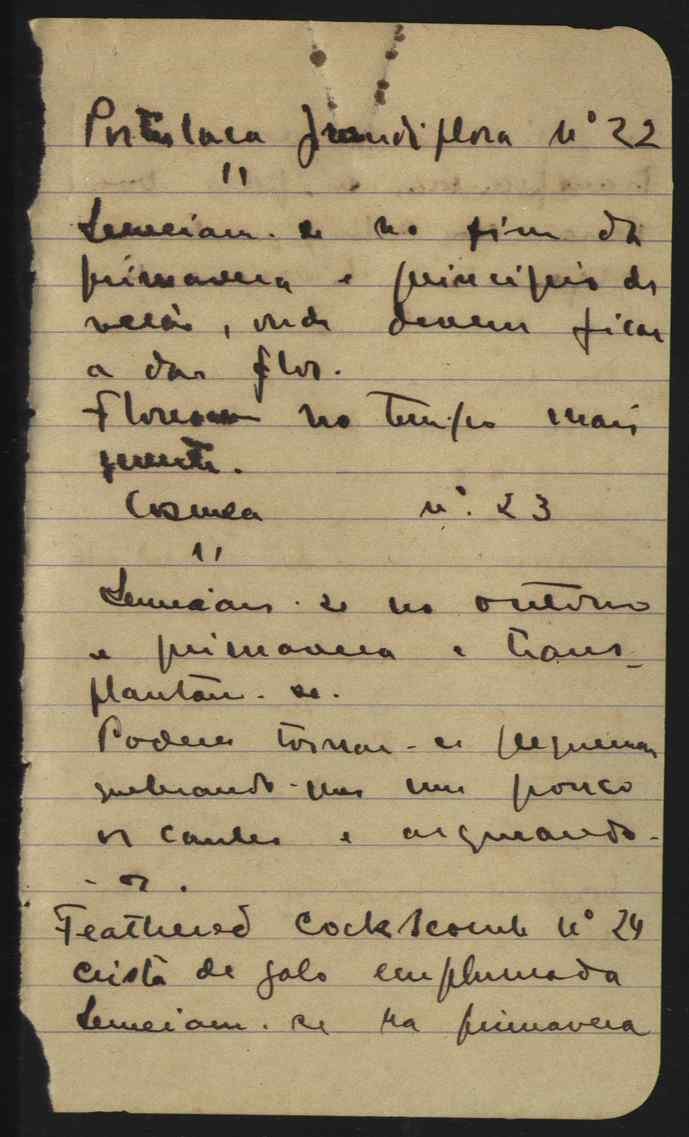 Portulaca grandiflora nº 22
"
Semeiam-se no fim da
primavera e principio do
verão, onde devem ficar
a dar flor.
Florescem no tempo mais
quente.
Cosmea nº. 23
"
Semeiam-se no outono
e primavera e trans-
plantam-se.
Podem tornar-se pequenas
quebrando-lhes um pouco
os caules e arqueando-
-os.
Feathered Cockscomb nº 24
crista de galo emplumada
Semeiam-se na primavera